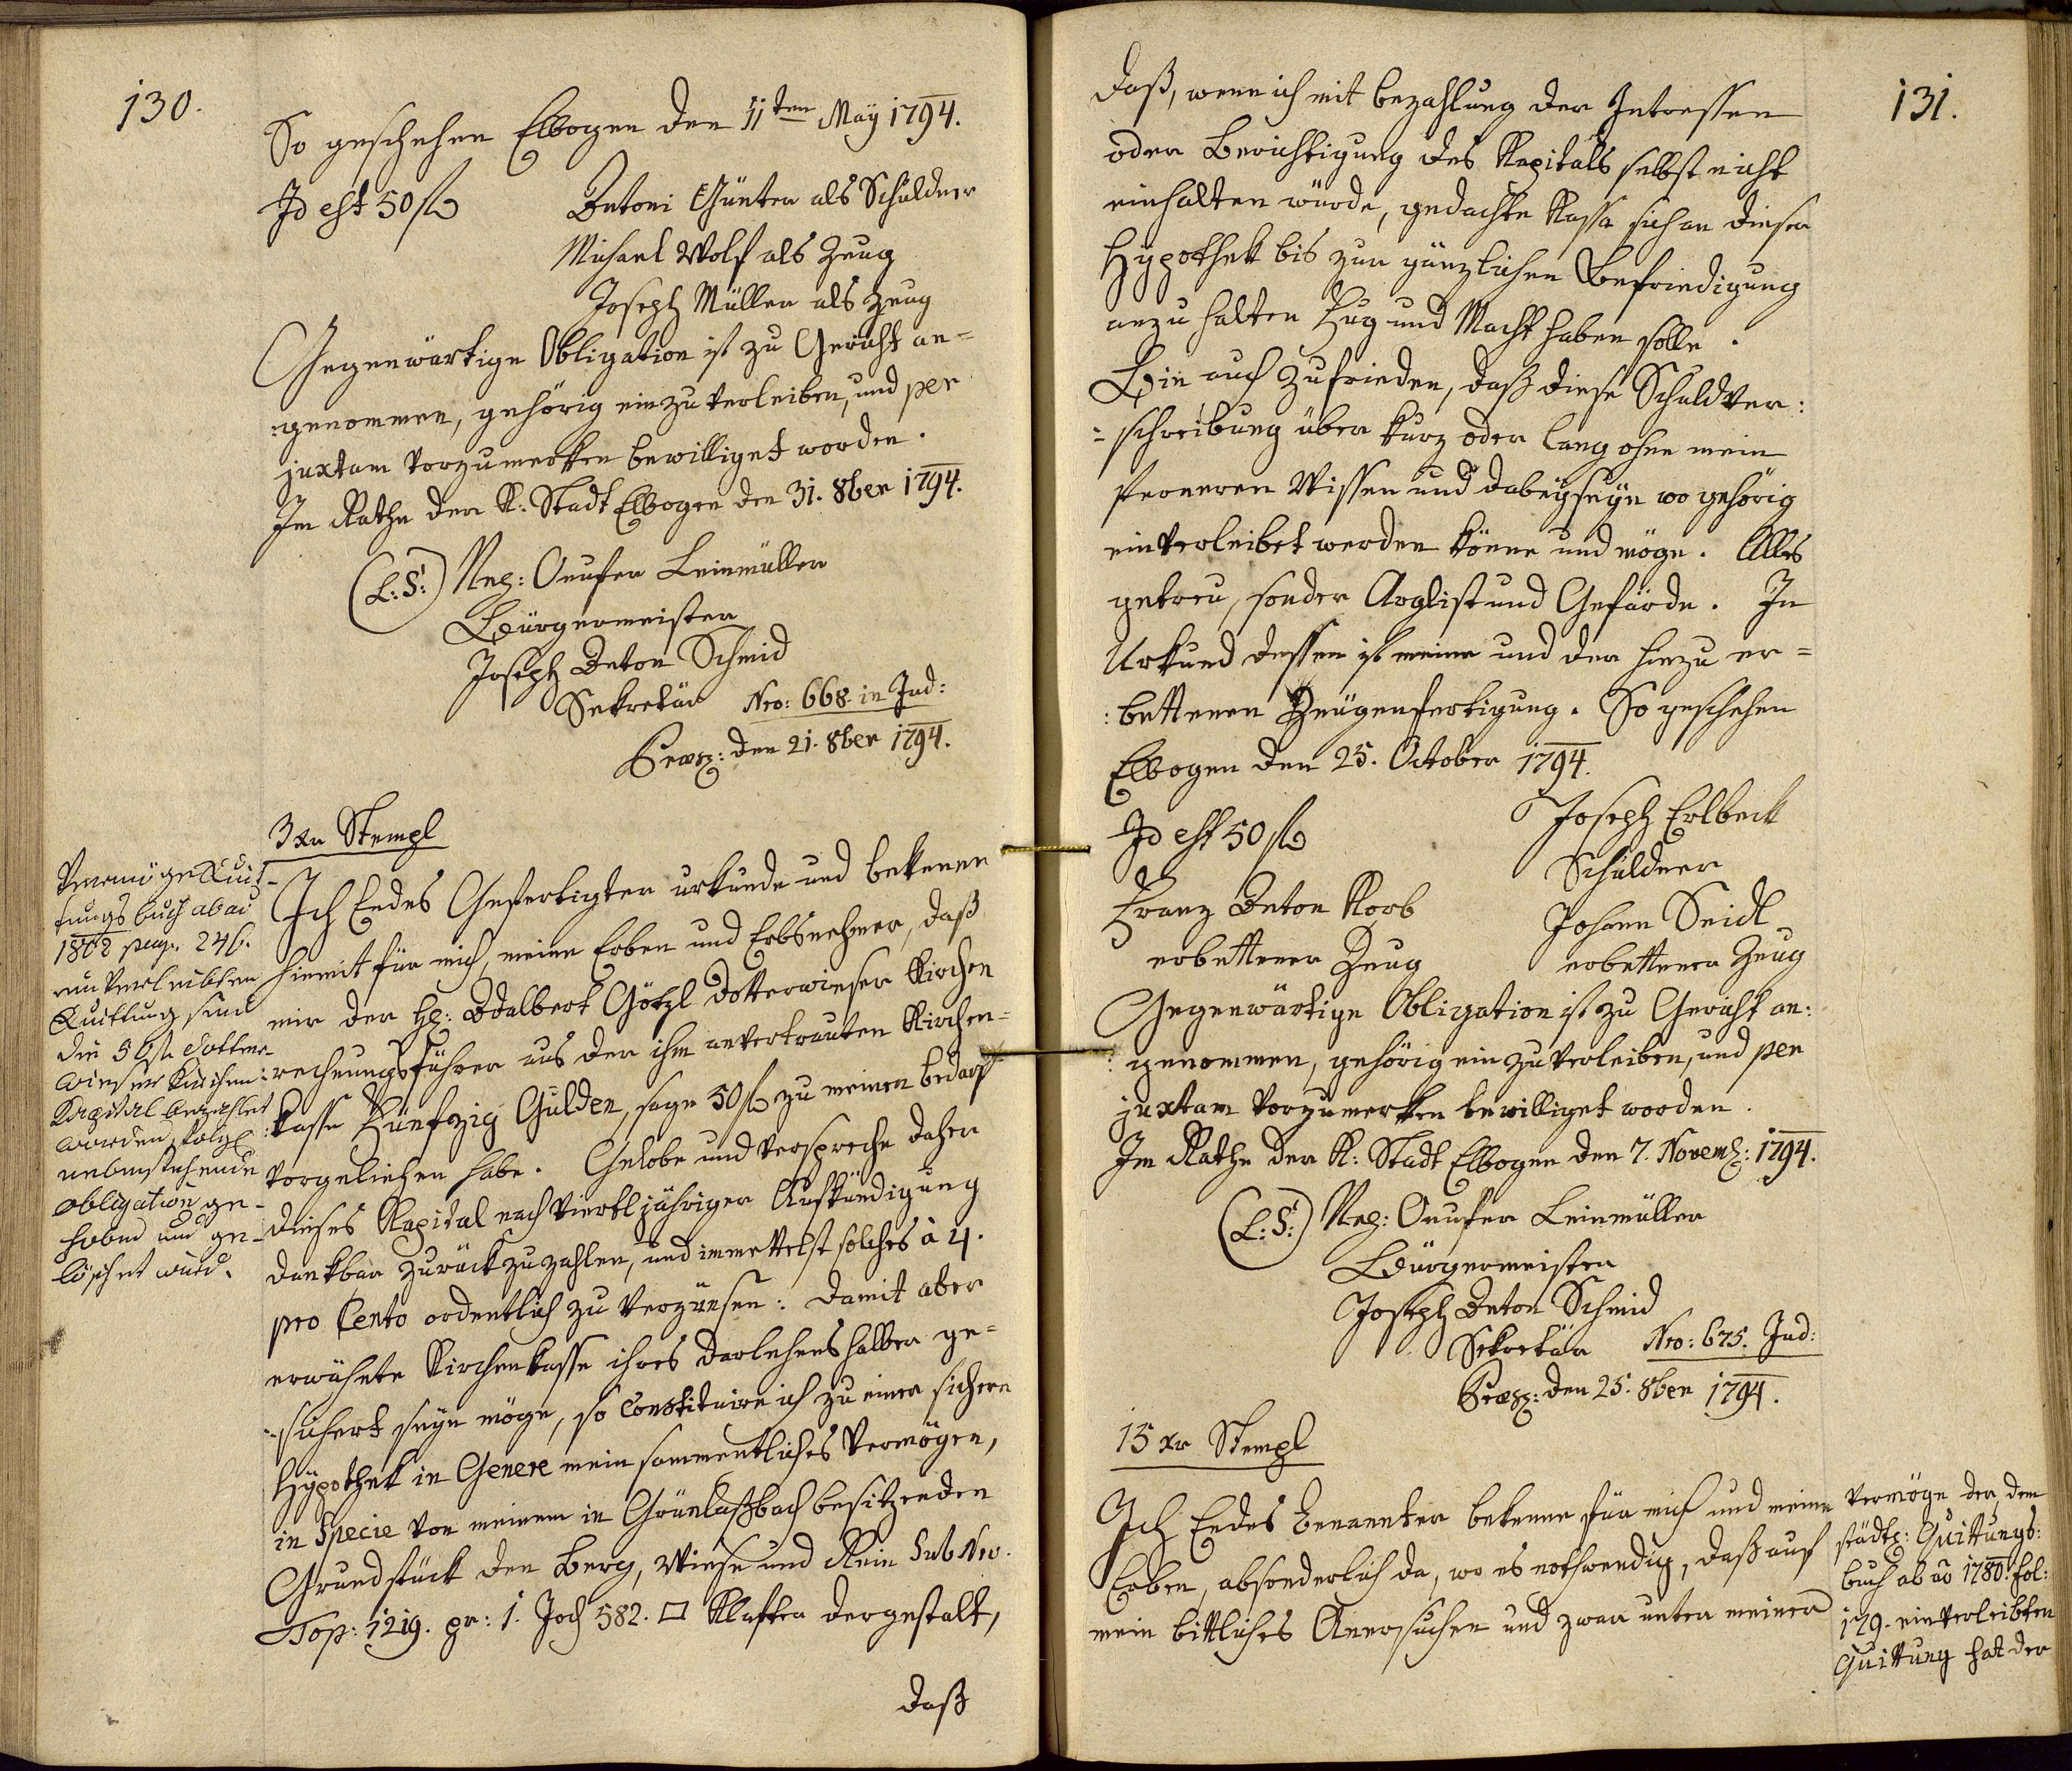 130.
So geschehen Elbogen den 11ten May 1794.
Id est 50 fl
Antoni Günter als Schuldner
Michael Wolf als Zeug
Joseph Müller als Zeug
Gegenwärtige Obligation ist zu Gericht an=
:genommen, gehörig einzuverleiben, und per
juxtam vorzumerken bewilliget worden.
Im Rathe der K: Stadt Elbogen den 31. 8ber 1794.
(L:S:) Onufer Leinmüller
Bürgermeister
Joseph Anton Schmid
Sekretär Nro: 668 in Jud:
Praes: den 21. 8ber 1794.
3 xr Stempl
Ich Endes Gefertigter urkunde und bekenne
hiemit für mich, meine Erben und Erbsnehmer, daß
mir der H: Adalbert Götzl dotterwieser Kirchen
:rechnungsführer aus der ihm anvertrauten Kirchen=
:kasse Fünfzig Gulden, sage 50 fl zu meinen bedarf
vorgeliehen habe. Gelobe und verspreche daher
dieses Kapital nach viertljähriger Aufkündigung
dankbar zurückzuzahlen, und immittelst solches à 4.
pro Cento ordentlich zu verzünsen: damit aber
erwähnte Kirchenkasse ihres darlehens halber ge=
:sichert seyn möge, so Constituire ich zu einer sichern
Hÿpothek in Genere mein sammentliches Vermögen,
in Specie von meinem in Grünlaßbach besitzenden
Grundstück den Berg, Wiese und Rein Sub Nro.
Top: 1219. pr: 1. Joch 582. □ Klafter dergestalt,
daß
Vermög Quit-
tungsbuch ab ao
1802 pag. 246.
einverleibten
Quittung sind
die 50 fl dotter
wieser Kirchen
Kapital bezahlet
worden, folgl
nebenstehende
Obligation ge-
hoben und ge-
löschet wird.
131.
daß, wenn ich mit bezahlung der Intressen
oder Berichtigung des Kapitals selbst nicht
einhalten würde, gedachte Kassa sich an dieser
Hÿpothek bis zur gänzlichen Befriedigung
anzuhalten Fug und Macht haben solle.
Bin auch zufrieden, daß diese Schuldver:
=schreibung über kurz oder lang ohne mein
ferneren Wissen und dabeyseyn wo gehörig
einverleibet werden könne und möge. Alles
getreu, sonder Arglist und Gefärde. In
Urkund dessen ist meine und der hiezu er=
:bettenen Zeugenfertigung. So geschehen
Elbogen den 25. October 1794.
Id est 50 fl
Joseph Erlbeck
Schuldner
Franz Anton Korb
erbettener Zeug
Johann Seidl
erbettener Zeug
Gegenwärtige Obligation ist zu Gericht an:
:genommen, gehörig einzuverleiben, und per
juxtam vorzumerken bewilliget worden.
Im Rathe der K: Stadt Elbogen den 7. Novemb: 1794.
(L:S:) Onufer Leinmüller
Bürgermeister
Joseph Anton Schmid
Sekretär Nro: 675. Jud:
Praes: den 25. 8ber 1794.
15 xr Stempl
Ich Endes benannter bekenne für mich und meine
Erben, absonderlich da, wo es nothwendig, daß auf
mein bittliches Anersuchen und zwar unter meiner
Vermöge der, dem
städt: Quittungs:
buch ab ao 1780. fol:
179. einverleibten
Quittung hat der